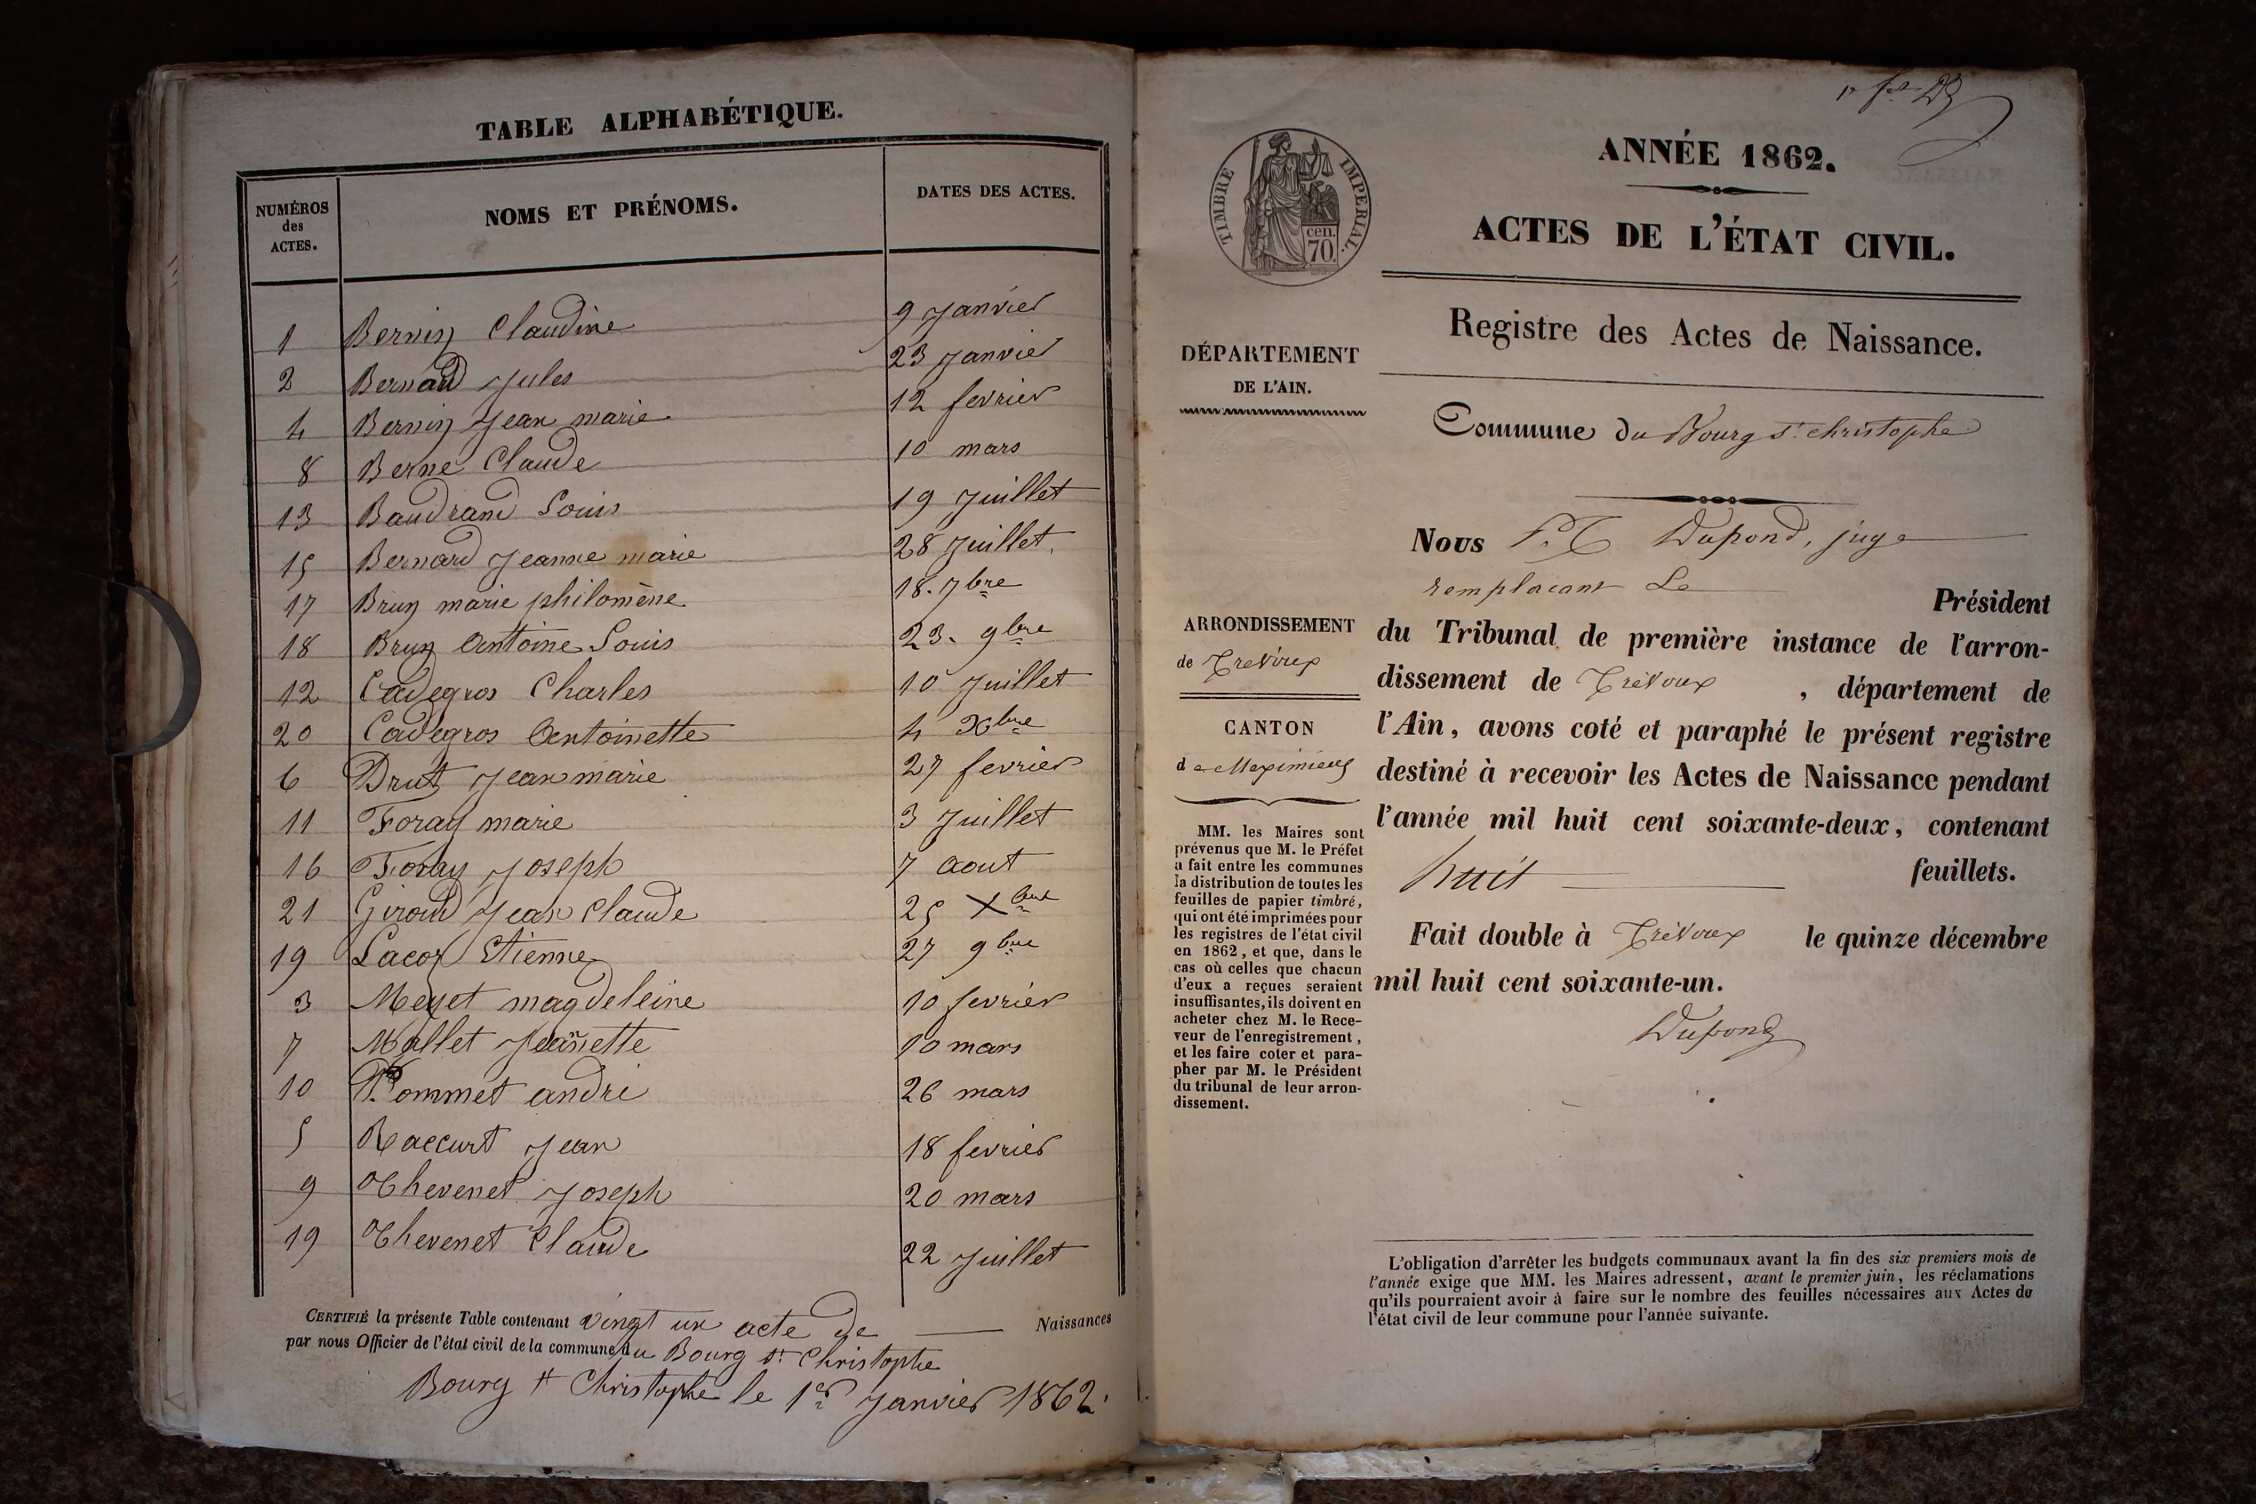 TABLE ALPHABÉTIQUE.
NUMÉROS des ACTES. NOMS ET PRÉNOMS. DATES DES ACTES.
1 Bervin Claudine 9 Janvier
2 Bernard Jules 23 Janvier
4 Bervin Jean marie 12 fevrier
8 Berne Claude 10 mars
13 Baudrand Louis 19 Juillet
15 Bernard Jeanne marie 28 Juillet.
17 Brun marie philomène 18. 7bre
18 Brun Antoine Louis 23. 9bre
12 Cadegros Charles 10 Juillet
20 Cadegros Antoinette 4 Xbre
6 Drut Jean marie 27 fevrier
11 Foray marie 3 Juillet
16 Foray Joseph 7 Aout
21 Giroud Jean Claude 25 Xbre
19 Lacox Etienne 27 9bre
3 Meyet magdeleine 10 fevrier
7 Mollet Jeannette 10 mars
10 Pommet andré 26 mars
5 Raccurt Jean 18 fevrier
9 Thevenet Joseph 20 mars
19 Thevenet Claude 22 Juillet
CERTIFIÉ la présente Table contenant vingt un acte de Naissances
par nous Officier de l'état civil de la commune du Bourg St Christophe
Bourg St Christophe le 1er Janvier 1862.
ANNÉE 1862.
TIMBRE IMPÉRIAL.
cen.
70.
ACTES DE L'ÉTAT CIVIL.
Registre des Actes de Naissance.
DÉPARTEMENT
DE L'AIN.
Commune du Bourg St christophe
Nous Dupond, juge
remplacant Le Président
du Tribunal de première instance de l'arron-
dissement de Trévoux, département de
l'Ain, avons coté et paraphé le présent registre
destiné à recevoir les Actes de Naissance pendant
l'année mil huit cent soixante-deux, contenant
huit feuillets.
Fait double à Trévoux le quinze décembre
mil huit cent soixante-un.
Dupond
ARRONDISSEMENT
de Trévoux
CANTON
de Meximieux
MM. les Maires sont
prévenus que M. le Préfet
a fait entre les communes
la distribution de toutes les
feuilles de papier timbré,
qui ont été imprimées pour
les registres de l'état civil
en 1862, et que, dans le
cas où celles que chacun
d'eux a reçues seraient
insuffisantes, ils doivent en
acheter chez M. le Rece-
veur de l'enregistrement,
et les faire coter et para-
pher par M. le Président
du tribunal de leur arron-
dissement.
L'obligation d'arrêter les budgets communaux avant la fin des six premiers mois de
l'année exige que MM. les Maires adressent, avant le premier juin, les réclamations
qu'ils pourraient avoir à faire sur le nombre des feuilles nécessaires aux Actes de
l'état civil de leur commune pour l'année suivante.